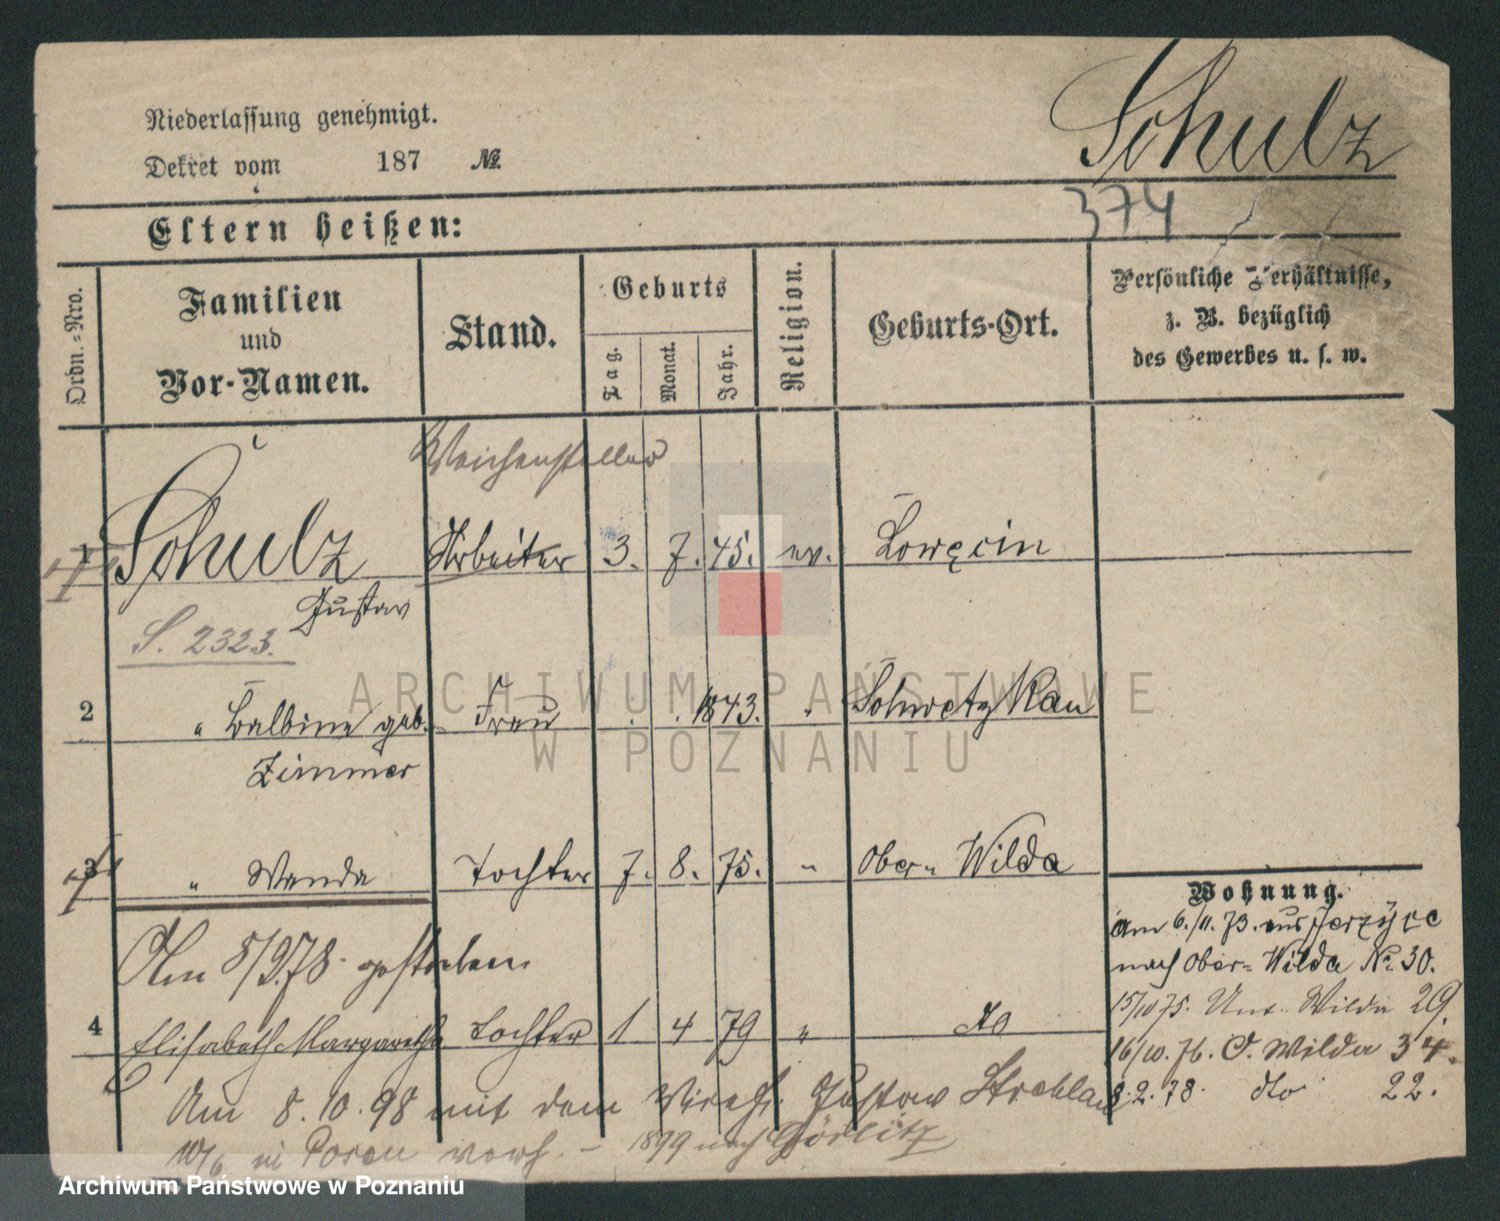 Schulz
Niederlassung genehmigt.
Dekret vom 187 №
374
Eltern heißen:
Ordn.-Nro.
Familien
und
Vor-Namen.
Stand.
Geburts
Tag.
Monat.
Jahr.
Religion.
Geburts-Ort.
Persönliche Verhältnisse,
z. B. bezüglich
des Gewerbes u. s. w.
Weichensteller
1 Schulz Arbeiter 3. 7. 45. ev. Lowęcin
Gustav
S. 2323.
2 " Balbine geb. Frau . . 1843. "
Zimmer
3 " Wanda Tochter 7. 8. 75. " Ober- Wilda
Am 8/9.78. gestorben
4 Elisabeth Margarethe Tochter 1 4 79 " do
Am 8.10.98 mit dem Gustav
in Posen verh. - 1899 nach Görlitz
Wohnung.
Am 6./11. 73. aus Jerzyce
nach Ober- Wilda № 30.
15/10 75. Unt. Wilda 29.
16/10. 76. O. Wilda 34.
8.2.78. dto 22.
ARCHIWUM PAŃSTWOWE
W POZNANIU
Archiwum Państwowe w Poznaniu